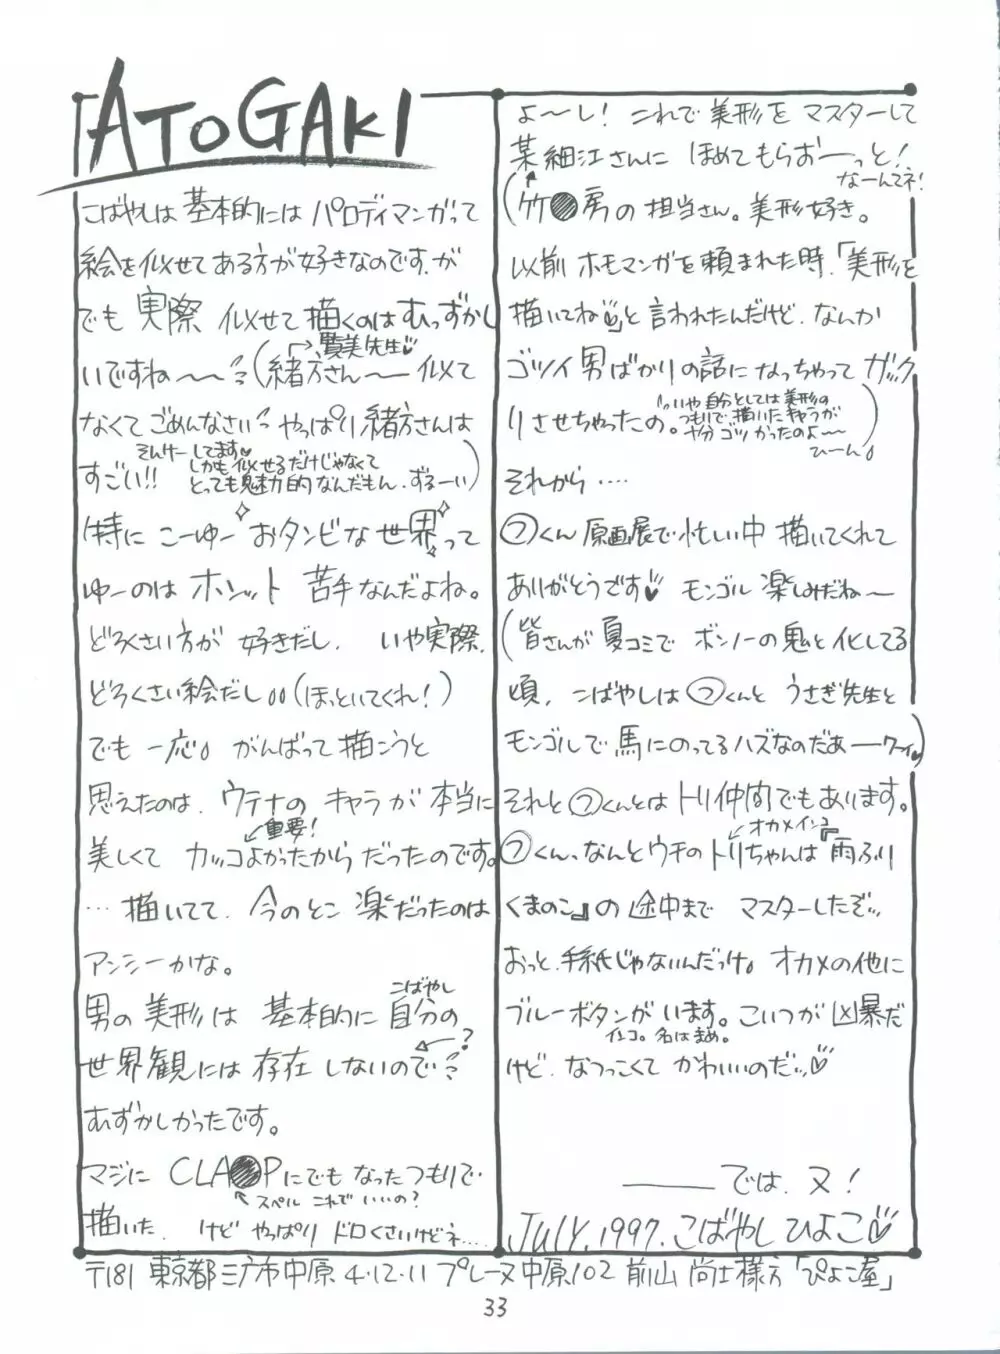 ATOGAKI
こばやしは基本的にはパロディマンガって
絵を似せてある方が好きなのです、が
でも実際似せて描くのはむっずかし
いですね〜〜(緒方さん〜〜似て
賢美先生♡
なくてごめんなさい やっぱり緒方さんは
すごい!!
そんけーしてます♥
しかも似せるだけじゃなくて
とっても魅力的なんだもん、ずるーい)
特にこーゆーおタンビな世界って
ゆーのはホンット苦手なんだよね。
どろくさい方が好きだし いや実際、
どろくさい絵だし。。(ほっといてくれ!)
でも一応。がんばって描こうと
思えたのは、ウテナのキャラが本当に
重要!
美しくてカッコよかったからだったのです。
…描いてて、今のとこ楽だったのは
アンシーかな。
こばやし
男の美形は基本的に自分の
世界観には存在しないので
?
むずかしかったです。
マジにCLA●Pにでもなったつもりで
スペルこれでいいの?
描いた、けどやっぱりドロくさいけどネ....
よ〜〜し!これで美形をマスターして
某細江さんにほめてもらおーっと!
なーんてネ!
(竹●房の担当さん。美形好き。
以前ホモマンガを頼まれた時、「美形を
描いてね♡」と言われたんだけど、なんか
ゴツイ男ばかりの話になっちゃってガック
リさせちゃったの。
いや自分としては美形の
つもりで描いたキャラが
十分ゴツかったのよ〜
ひーん。)
それから‥‥
㋡くん原画展で忙しい中描いてくれて
ありがとうです♡ モンゴル楽しみだね〜
(皆さんが夏コミでボンノーの鬼と化してる
頃、こばやしは㋡くんとうさぎ先生と
モンゴルで馬にのってるハズなのだあーワーイ♥)
それと㋡くんとはトリ仲間でもあります。
オカメインコ
㋡くん、なんとウチのトリちゃんは『雨ふり
くまのこ』の途中までマスターしたぞ…
おっと、手紙じゃないんだっけ。オカメの他に
ブルーボタンがいます。こいつが凶暴だ
インコ。名はまめ。
けど、なつっこくてかわいいのだ…♡
――では、又!
JULY,1997,こばやしひよこ♡
〒181 東京都三鷹市中原4-12-11 プレーヌ中原102 前山尚士様方「ぴよこ屋」
33